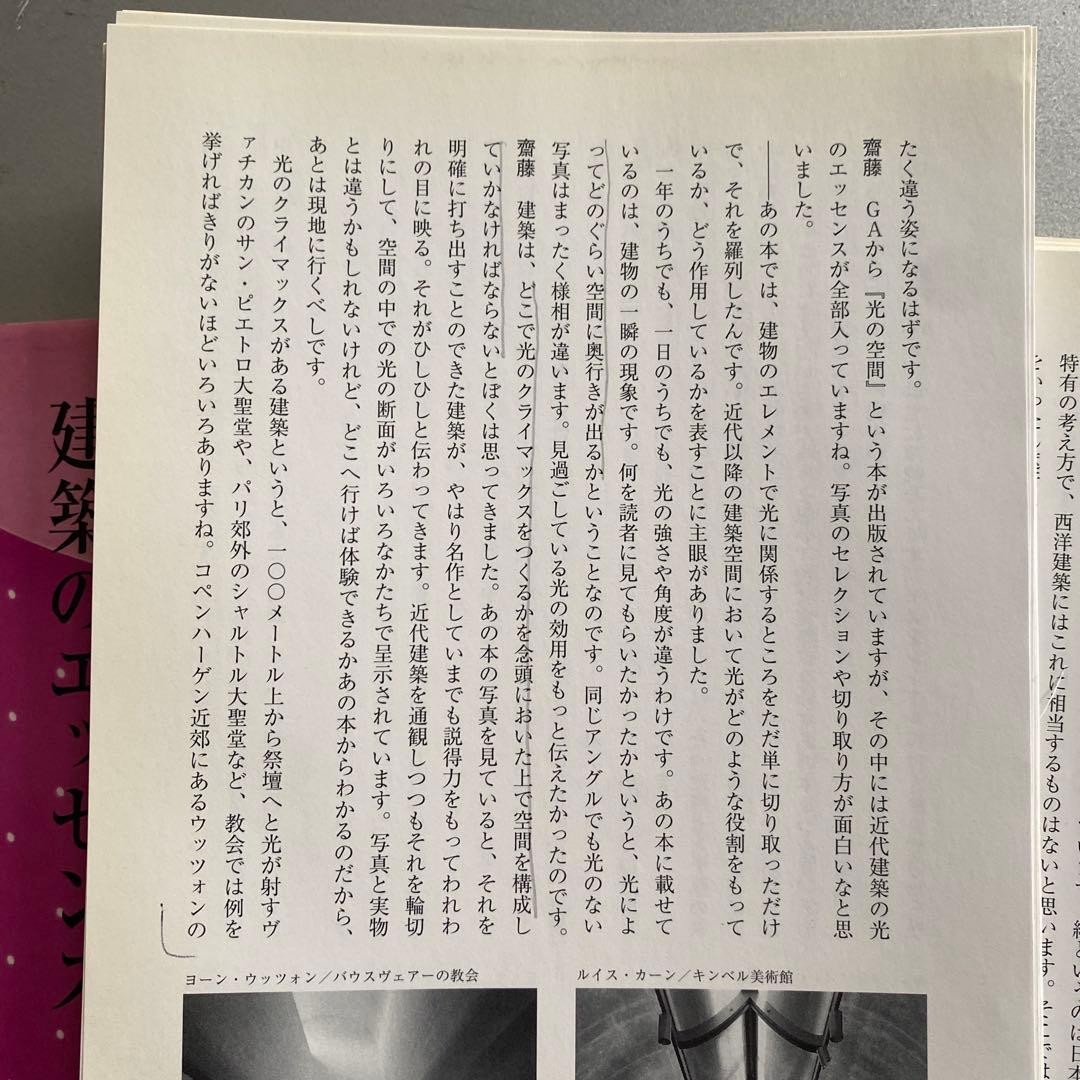 たく違う姿になるはずです。
齋藤　GAから『光の空間』という本が出版されていますが、その中には近代建築の光
のエッセンスが全部入っていますね。写真のセレクションや切り取り方が面白いなと思
いました。
――あの本では、建物のエレメントで光に関係するところをただ単に切り取っただけ
で、それを羅列したんです。近代以降の建築空間において光がどのような役割をもって
いるか、どう作用しているかを表すことに主眼がありました。
一年のうちでも、一日のうちでも、光の強さや角度が違うわけです。あの本に載せて
いるのは、建物の一瞬の現象です。何を読者に見てもらいたかったかというと、光によ
ってどのぐらい空間に奥行きが出るかということなのです。同じアングルでも光のない
写真はまったく様相が違います。見過ごしている光の効用をもっと伝えたかったのです。
齋藤　建築は、どこで光のクライマックスをつくるかを念頭においた上で空間を構成し
ていかなければならないとぼくは思ってきました。あの本の写真を見ていると、それを
明確に打ち出すことのできた建築が、やはり名作としていまでも説得力をもってわれわ
れの目に映る。それがひしひしと伝わってきます。近代建築を通観しつつもそれを輪切
りにして、空間の中での光の断面がいろいろなかたちで呈示されています。写真と実物
とは違うかもしれないけれど、どこへ行けば体験できるかあの本からわかるのだから、
あとは現地に行くべしです。
光のクライマックスがある建築というと、一〇〇メートル上から祭壇へと光が射すヴ
ァチカンのサン・ピエトロ大聖堂や、パリ郊外のシャルトル大聖堂など、教会では例を
挙げればきりがないほどいろいろありますね。コペンハーゲン近郊にあるウッツォンの
ルイス・カーン／キンベル美術館
ヨーン・ウッツォン／バウスヴェアーの教会
特有の考え方で、西洋建築にはこれに相当するものはないと思います。そこでは
建築のエッセンス